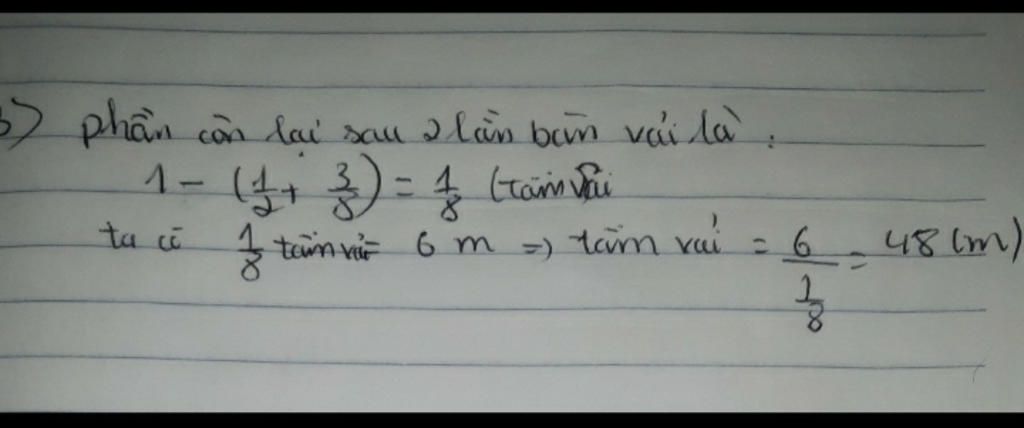 3) phần còn lại sau 2 lần bán vải là :
1 - (1/2 + 3/8) = 1/8 (tấm vải
ta có 1/8 tấm vải = 6 m => tấm vải = 6/(1/8) = 48 (m)